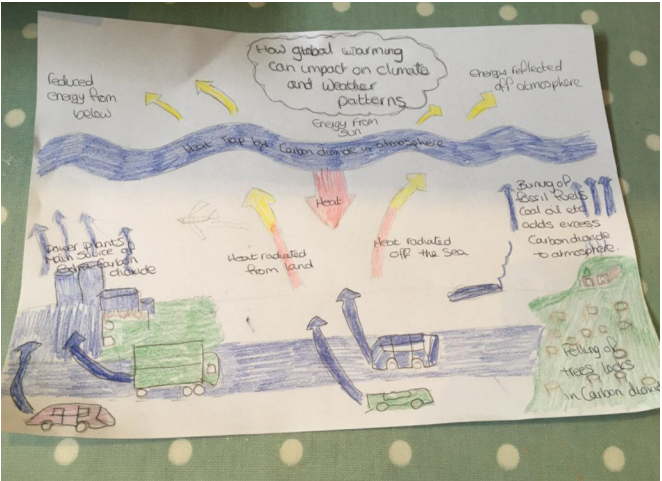 How global warming
can impact on climate
and weather
patterns
reduced
energy from
below
Energy reflected
off atmosphere
Energy from
Sun
Heat Trap by Carbon dioxide in atmosphere
Heat
Power plants
Main source of
Extra Carbon
dioxide
Heat radiated
from land
Heat radiated
off the Sea
Burning of
fossil fuels
Coal oil etc
adds excess
Carbon dioxide
to atmosphere.
Felling of
trees locks
in Carbon dioxide